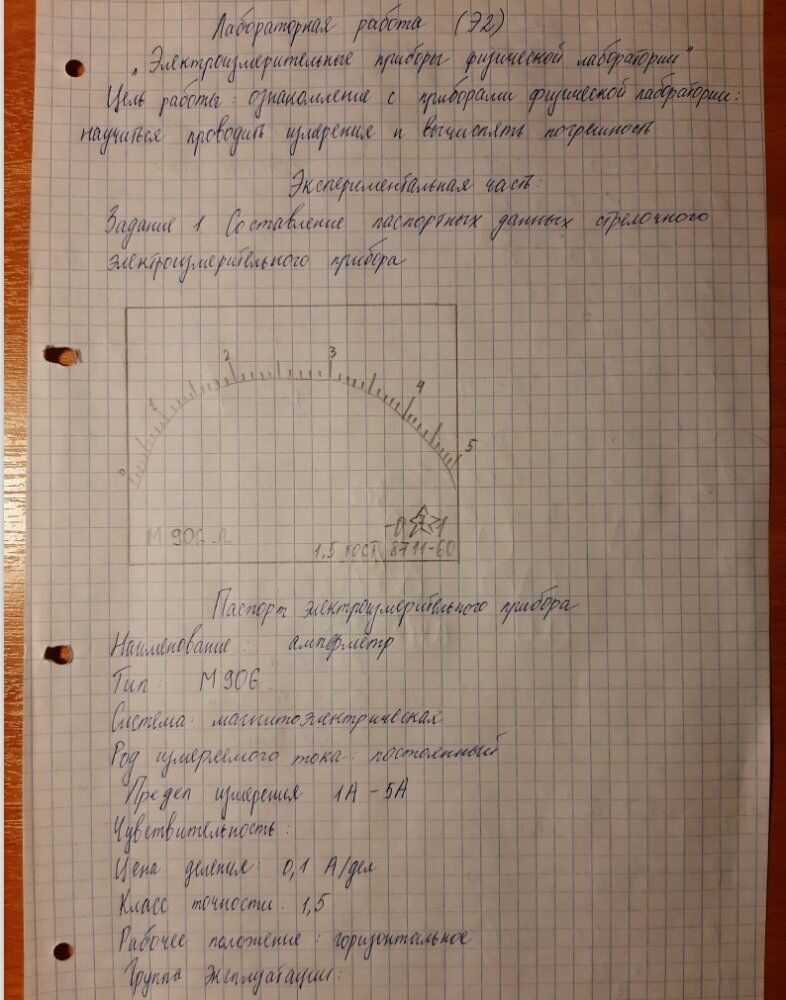 Лабораторная работа (Э2)
„Электроизмерительные приборы физической лаборатории"
Цель работы: ознакомление с приборами физической лаборатории:
научиться проводить измерения и вычислять погрешность
Экспериментальная часть:
Задание 1 Составление паспортных данных стрелочного
электроизмерительного прибора
0 1 2 3 4 5
М 906
1,5 ГОСТ 8711-60
Паспорт электроизмерительного прибора
Наименование: амперметр
Тип: М906
Система: магнитоэлектрическая
Род измеряемого тока: постоянный
Предел измерения 1А - 5А
Чувствительность:
Цена деления: 0,1 А/дел
Класс точности: 1,5
Рабочее положение: горизонтальное
Группа эксплуатации: